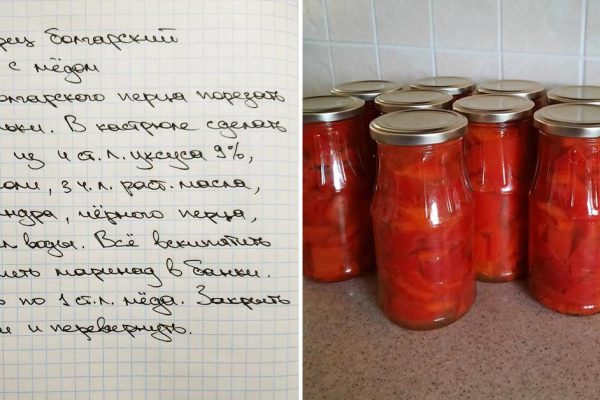 рец болгарский
с мёдом
олгарского перца порезать
ньки. В кастрюле сделать
из 4 ст. л. уксуса 9%,
соли, 3 ч. л. раст. масла,
андра, чёрного перца,
л воды. Всё вскипятить
лить маринад в банки.
ь по 1 ст. л. мёда. Закрыть
и и перевернуть.